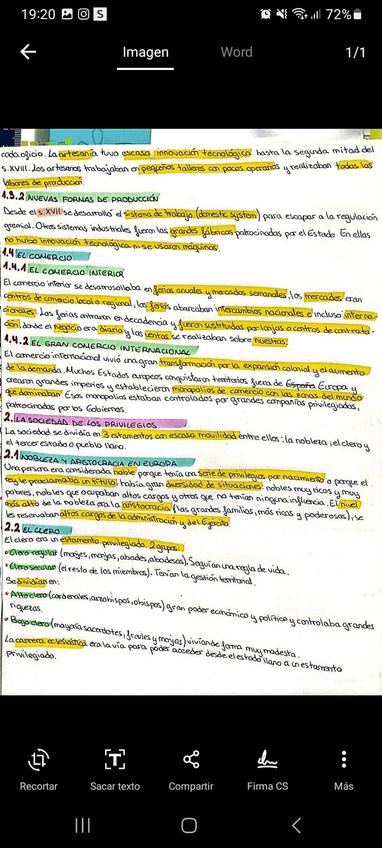 19:20 S 72%
Imagen Word 1/1
cada oficio. La artesanía tuvo escasa innovación tecnológica hasta la segunda mitad del
s.XVIII. Los artesanos trabajaban en pequeños talleres con pocos operarios y realizaban todas las
labores de producción.
1.3.2 NUEVAS FORMAS DE PRODUCCIÓN
Desde el s.XVII se desarrolló el sistema de trabajo (domestic system) para escapar a la regulación
gremial. Otros sistemas industriales fueron las grandes fábricas patrocinadas por el Estado. En ellas
no hubo innovación tecnológica ni se usaron máquinas.
1.4 EL COMERCIO
1.4.1 EL COMERCIO INTERIOR
El comercio interior se desarrollaba en ferias anuales y mercados semanales, los mercados eran
centros de comercio local o regional, las ferias abarcaban intercambios nacionales e incluso interna-
cionales. Las ferias entraron en decadencia y fueron sustituidas por lonjas o centros de contrata-
ción, donde el negocio era diario y las ventas se realizaban sobre muestras.
1.4.2 EL GRAN COMERCIO INTERNACIONAL
El comercio internacional vivió una gran transformación por la expansión colonial y el aumento
de la demanda. Muchos Estados europeos conquistaron territorios fuera de España Europa y
crearon grandes imperios y establecieron monopolios de comercio con las zonas del mundo
que dominaban. Esos monopolios estaban controlados por grandes compañías privilegiadas,
patrocinadas por los Gobiernos.
2. LA SOCIEDAD DE LOS PRIVILEGIOS
La sociedad se dividía en 3 estamentos con escasa movilidad entre ellos: la nobleza, el clero y
el tercer estado o pueblo llano.
2.1 NOBLEZA Y ARISTOCRACIA EN EUROPA
Una persona era considerada noble porque tenía una serie de privilegios por nacimiento o porque el
rey le proclamaba un título. Había gran diversidad de situaciones: nobles muy ricos y muy
pobres, nobles que ocupaban altos cargos y otros que no tenían ninguna influencia. El nivel
más alto de la nobleza era la aristocracia (las grandes familias, más ricas y poderosas); se
les reservaban altos cargos de la administración y del Ejército.
2.2 EL CLERO
El clero era un estamento privilegiado. 2 grupos:
• Clero regular (monjes, monjas, abades, abadesas). Seguían una regla de vida.
• Clero secular (el resto de los miembros). Tenían la gestión territorial.
Se dividían en:
• Alto clero (cardenales, arzobispos, obispos) gran poder económico y político y controlaba grandes
riquezas.
• Bajo clero (mayoría sacerdotes, frailes y monjas) vivían de forma muy modesta.
La carrera eclesiástica era la vía para poder acceder desde el estado llano a un estamento
privilegiado.
Recortar Sacar texto Compartir Firma CS Más